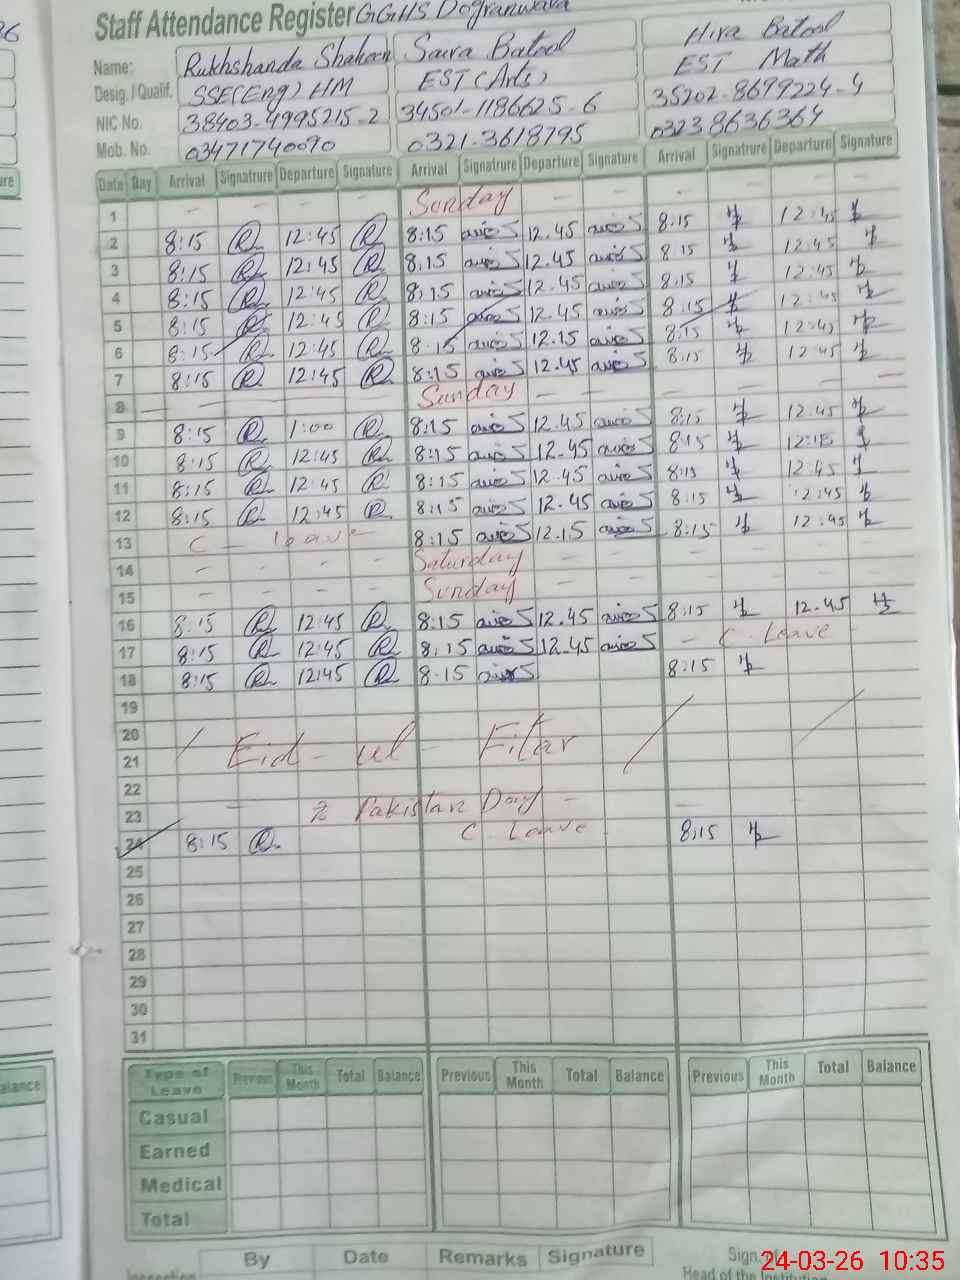 Staff Attendance Register GGHS Dogranwala
Name: Rukhshanda Shaheen Saira Batool Hira Batool
Desig. / Qualif. SSE(Eng) HM EST (Arts) EST Math
NIC No. 38403-4995215-2 34501-1186625-6 35202-8699224-4
Mob. No. 03471740090 0321-3618795 03238636364
Date Day Arrival Signatrure Departure Signature Arrival Signatrure Departure Signature Arrival Signatrure Departure Signature
1 - - - - Sunday - - - - -
2 8:15 12:45 8:15 12.45 8:15 12:45
3 8:15 12:45 8:15 12.45 8:15 12:45
4 8:15 12:45 8:15 12.45 8:15 12:45
5 8:15 12:45 8:15 12.45 8:15 12:45
6 8:15 12:45 8:15 12.15 8:15 12:45
7 8:15 12:45 8:15 12.45 8:15 12:45
8 Sunday - - - - -
9 8:15 1:00 8:15 12.45 8:15 12:45
10 8:15 12:45 8:15 12.45 8:15
11 8:15 12:45 8:15 12.45 8:15 12:45
12 8:15 12:45 8:15 12.45 8:15 12:45
13 C - leave 8:15 12.15 8:15 12:45
14 - - - - Saturday - - - - -
15 - - - - Sunday - - - - -
16 8:15 12:45 8:15 12.45 8:15 12.45
17 8:15 12:45 8:15 12.45 - C. Leave -
18 8:15 12:45 8.15 8:15
19
20
21 Eid-ul-Fitar
22
23 - Pakistan Day -
24 8:15 C. Leave 8:15
25
26
27
28
29
30
31
Type of Leave Previous This Month Total Balance Previous This Month Total Balance Previous This Month Total Balance
Casual
Earned
Medical
Total
By Date Remarks Signature Sign. of
Head of the Institution
24-03-26 10:35